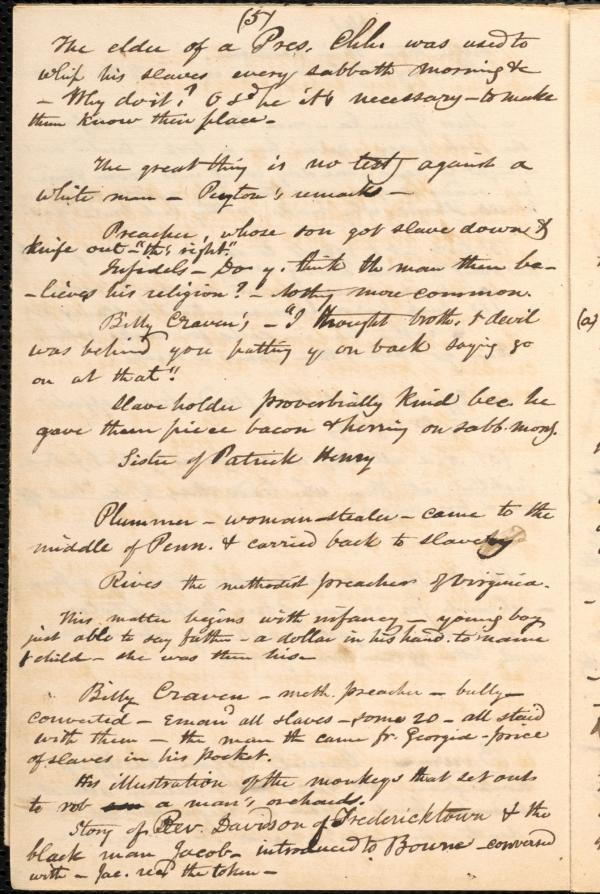 (5)
The elder of a Pres. Chh. was used to
whip his slaves every sabbath morning &c
- Why do it? O sd he it is necessary - to make
them know their place -
The great thing is no testy against a
white man - Peyton's remarks -
Preacher, whose son got slave down &
knife out - "th's right".
Infidels - Do y. think the man then be-
-lieves his religion? - Nothg more common.
Billy Craven's - "I thought broth. & devil
was behind you patting y on back saying go
on at that".
Slave holder proverbially kind bec. he
gave them piece bacon & herring on sabb. morng.
Sister of Patrick Henry
Plummer - woman-stealer - came to the
middle of Penn. & carried back to slavery
Rives the methodist preacher of Virginia.
This matter begins with infancy - young boy
just able to say father - a dollar in his hand. to name
& child - she was then his -
Billy Craven - meth. preacher - bully -
converted - Eman'd all slaves - some 20 - all staid
with them - the man th came fr. Georgia - price
of slaves in his pocket.
His illustration of the monkeys that set out
to rob a man's orchard.
Story of Rev. Davidson of Fredericktown & the
black man Jacob - introduced to Bourne - conversed
with - Jac. recd the token -
(a)